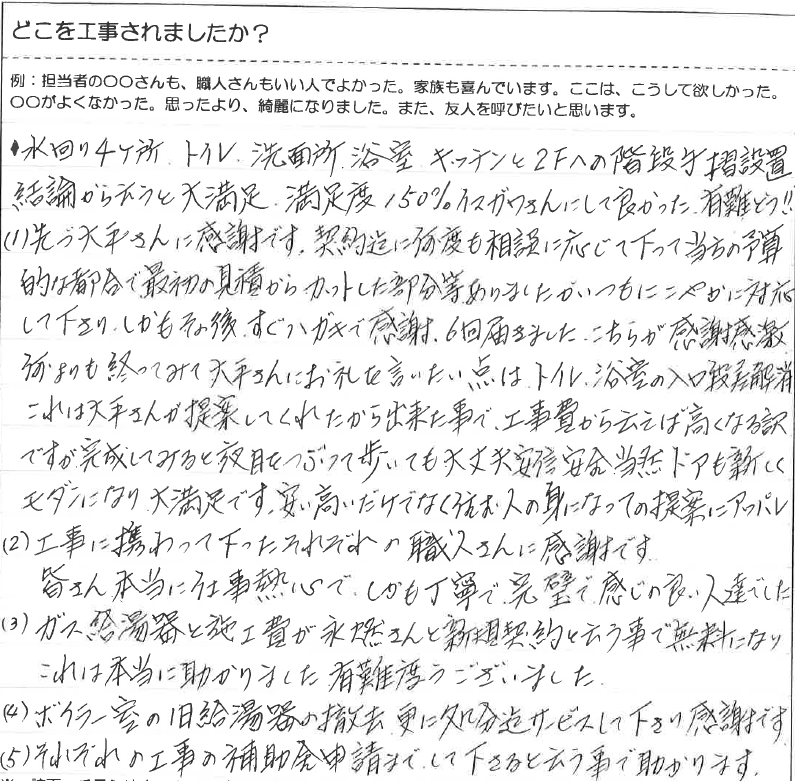 どこを工事されましたか？
例：担当者の〇〇さんも、職人さんもいい人でよかった。家族も喜んでいます。ここは、こうして欲しかった。
〇〇がよくなかった。思ったより、綺麗になりました。また、友人を呼びたいと思います。
♦水回り4ケ所、トイレ、洗面所、浴室、キッチンと2Fへの階段手摺設置
結論から云うと大満足、満足度150% イスズガワさんにして良かった、有難とう!!
(1)先づ大平さんに感謝です。契約迄に何度も相談に応じて下って当ちの予算
的な都合で最初の見積からカットした部分等ありましたがいつもにこやかに対応
して下さり、しかもその後、すぐハガキで感謝、6回届きました、こちらが感謝感激
何よりも終ってみて大平さんにお礼を言いたい点は、トイレ、浴室の入口段差解消
これは大平さんが提案してくれたから出来た事で、工事費から云えば高くなる訳
ですが完成してみると夜目をつぶって歩いても大丈夫安信安全当然ドアも新しく
モダンになり、大満足です。安い高いだけでなく住む人の身になっての提案にアッパレ
(2)工事に携わって下ったそれぞれの職人さんに感謝です
皆さん本当に仕事熱心で、しかも丁寧で、完璧で、感じの良い人達でした
(3)ガス給湯器と施工費が永燃さんと新規契約と云う事で無料になり
これは本当に助かりました 有難度うございました。
(4)ボイラー室の旧給湯器の撤去、更に処分迄サービスして下さり感謝です
(5)それぞれの工事の補助金申請まで、して下さると云う事で助かります。